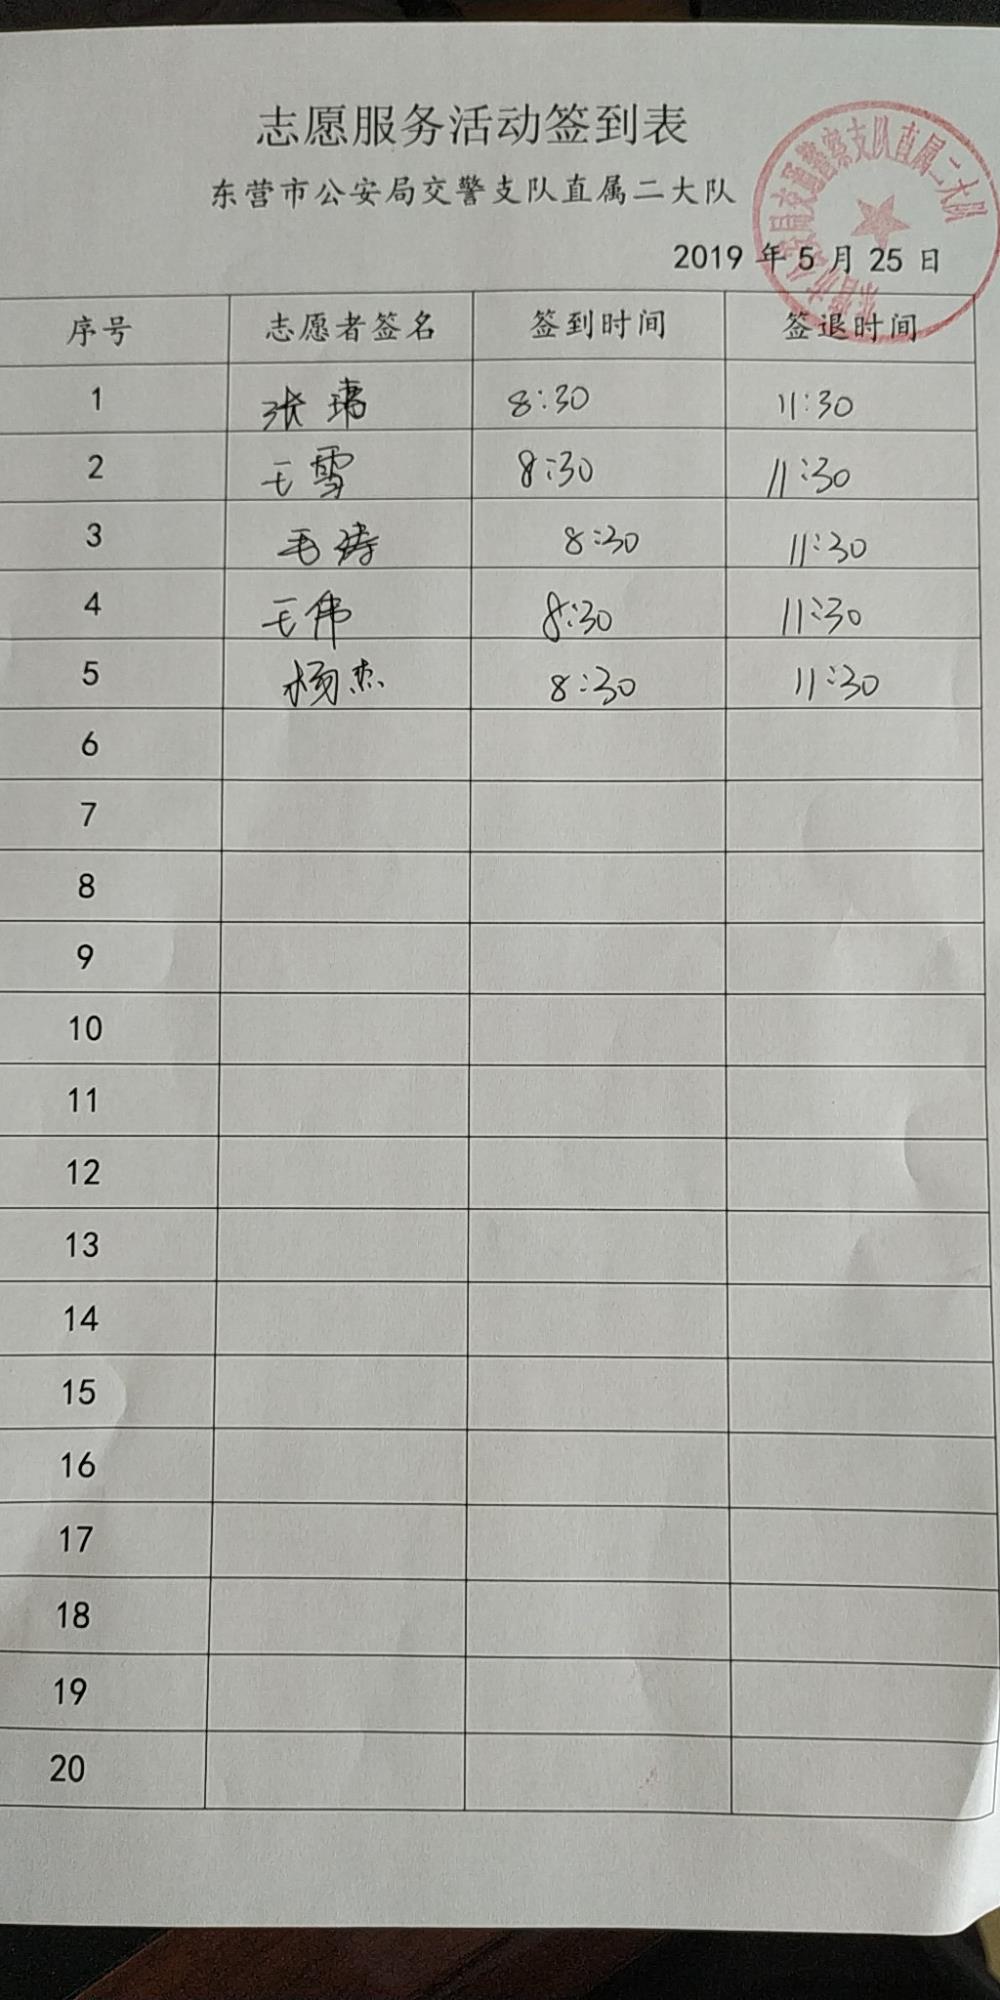 志愿服务活动签到表
东营市公安局交警支队直属二大队
东营市公安局交通警察支队直属二大队
2019 年 5 月 25 日
序号 志愿者签名 签到时间 签退时间
1 张 8:30 11:30
2 王雪 8:30 11:30
3 毛涛 8:30 11:30
4 王伟 8:30 11:30
5 杨杰 8:30 11:30
6
7
8
9
10
11
12
13
14
15
16
17
18
19
20